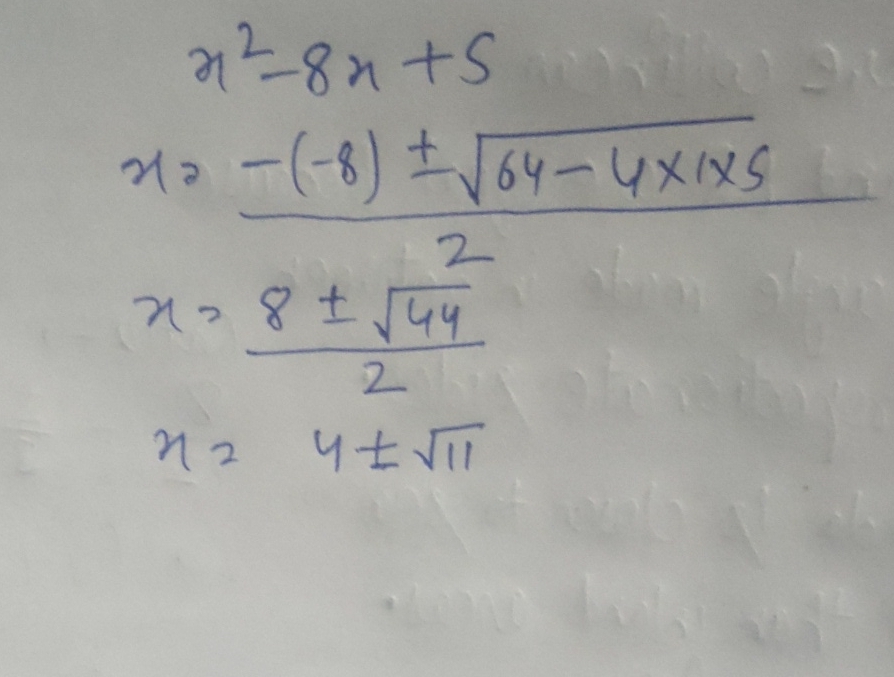 x² - 8x + 5
x = -(-8) ± √64 - 4×1×5 / 2
x = 8 ± √44 / 2
x = 4 ± √11